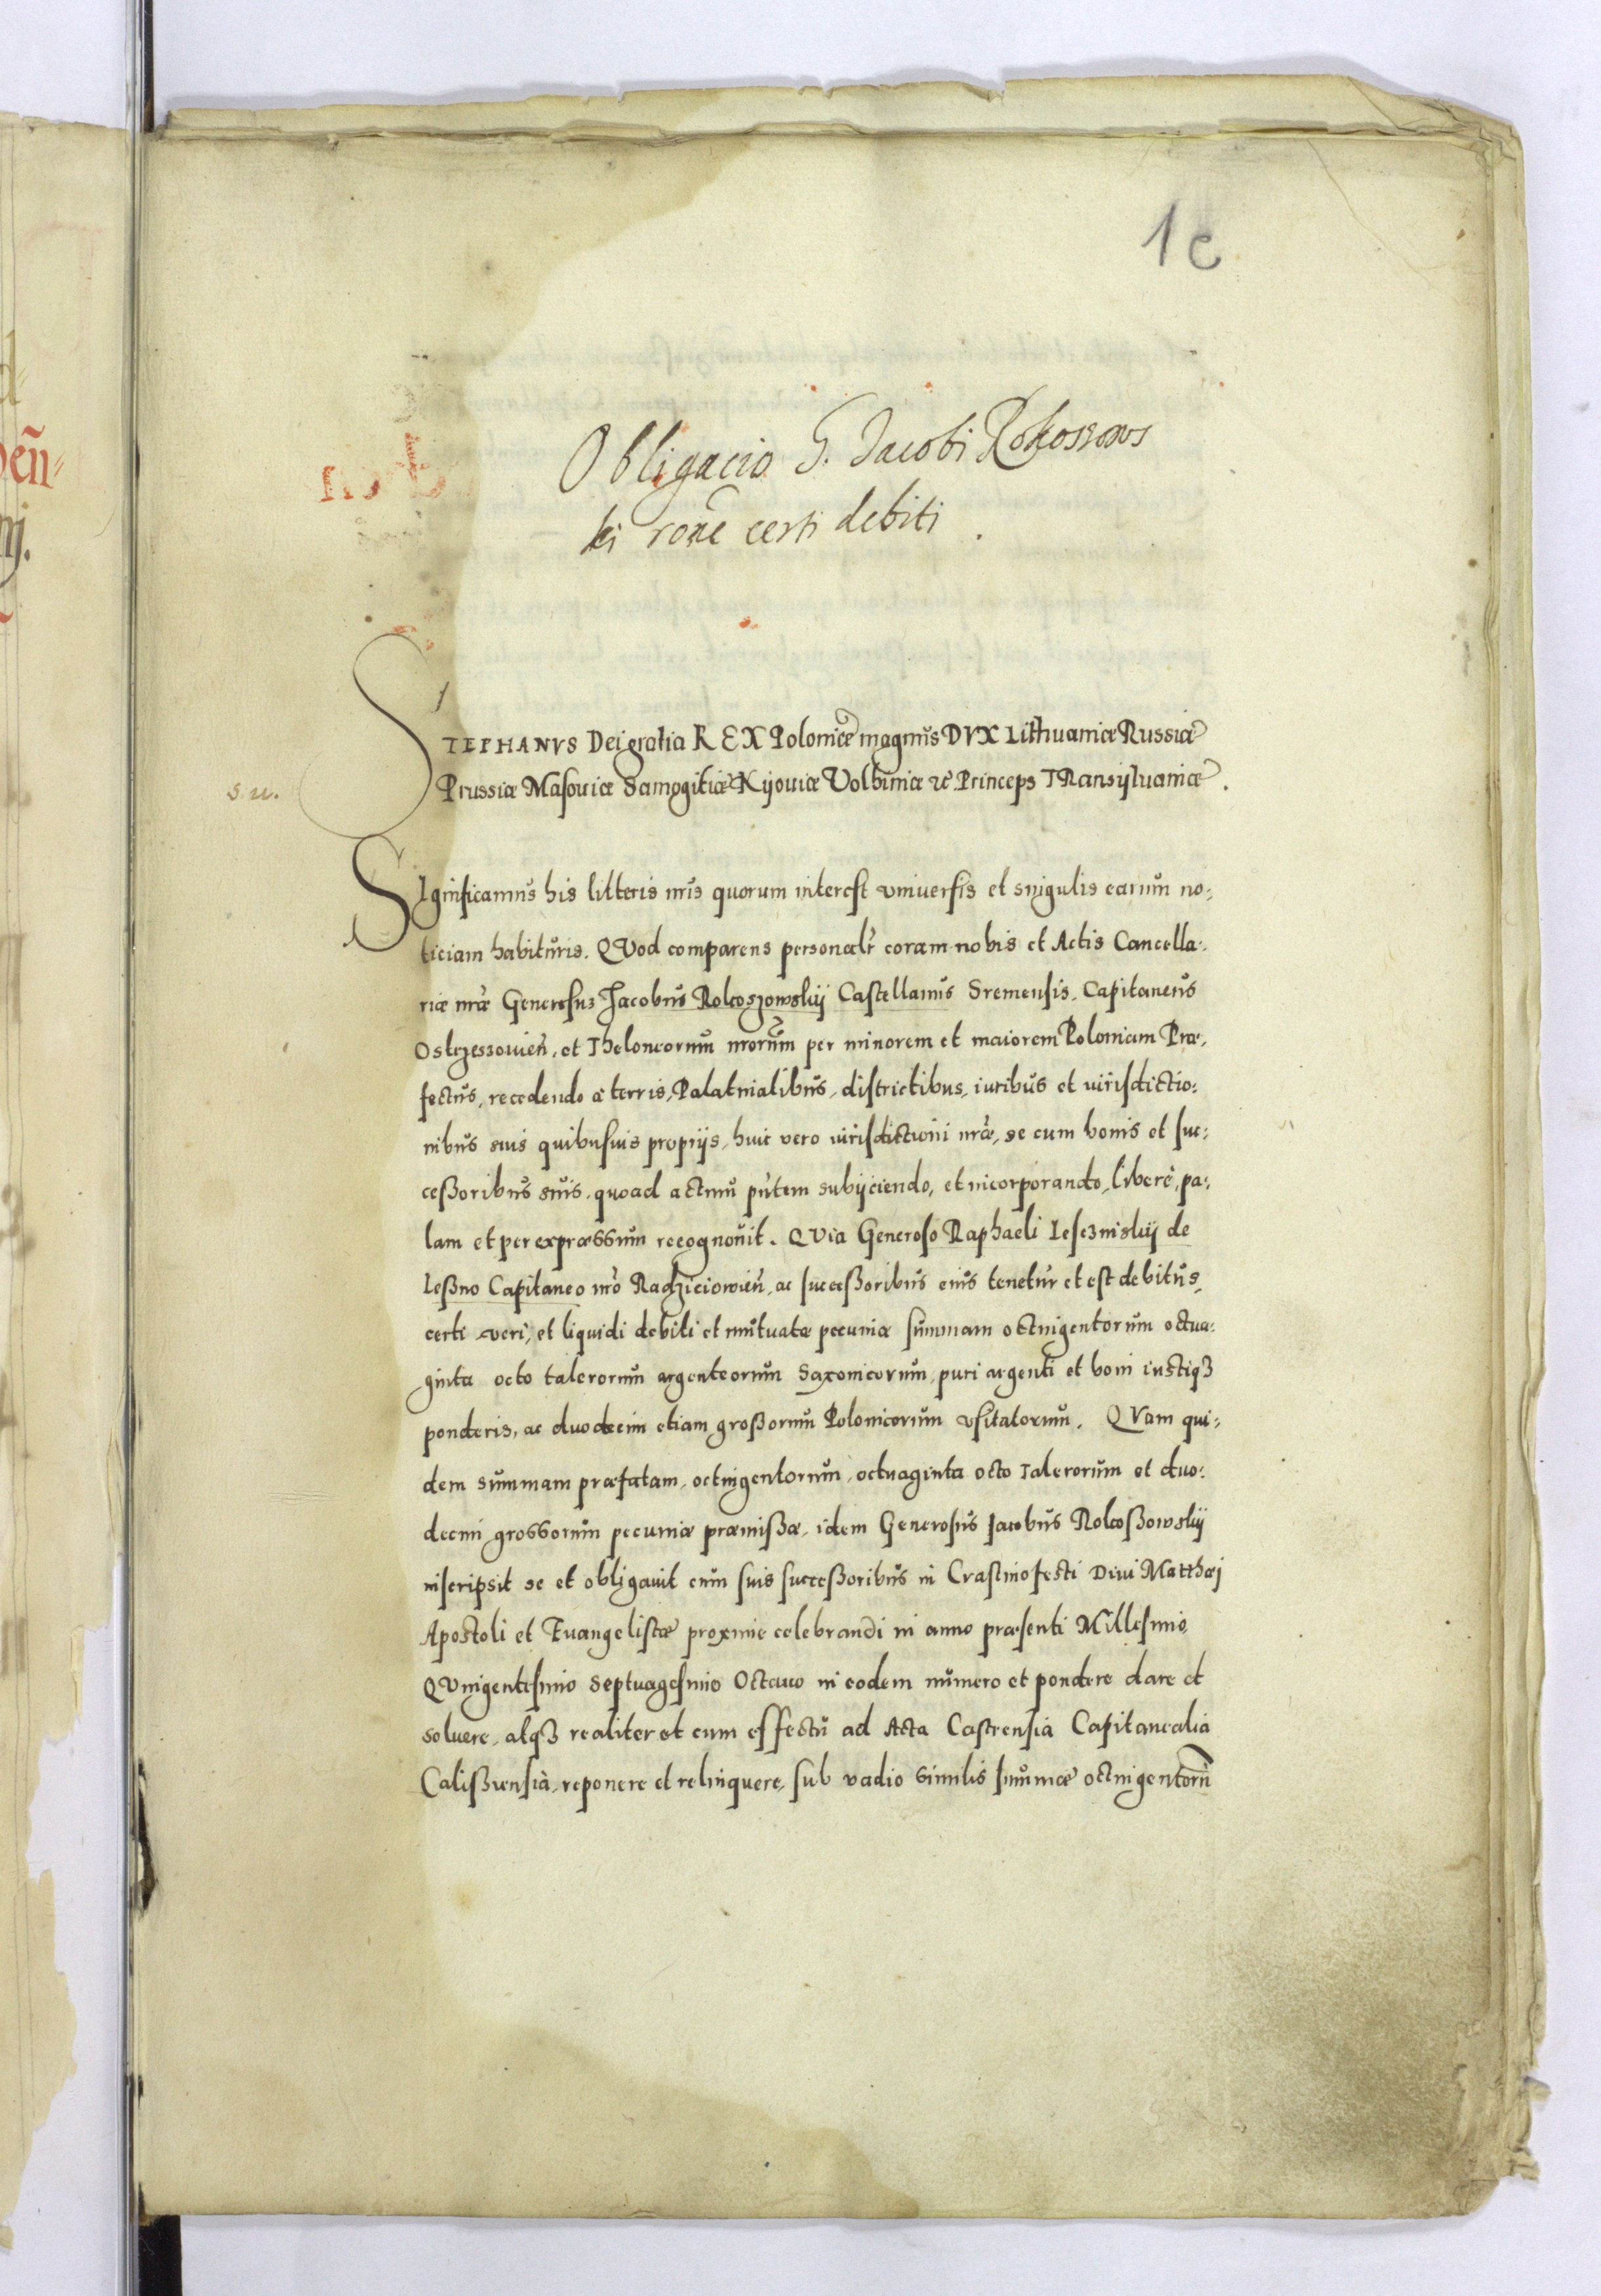 1c
Obligacio G. Jacobi Rokossows
ki rone certi debiti.
STEPHANVS Dei gratia REX Poloniæ magnus DVX Lithuaniæ Russiæ
s.u.
Prussiæ Masouiæ Samogitiæ Kijouiæ Volhiniæ &c Princeps TRansijluaniæ.
SIgnificamus his litteris nris quorum interest vniuersis et singulis earum no:
ticiam habituris. QVod comparens personalr coram nobis et Actis Cancella:
riæ nræ Generosus Jacobus Rokoszowskij Castellanus Sremensis. Capitaneus
Ostrzessouien. et Theloneorum nrorum per minorem et maiorem Poloniam Præ:
fectus, recedendo a terris, Palatinalibus, districtibus, iuribus et iurisdictio:
nibus suis quibusuis proprijs, huic vero iurisdictioni nræ, se cum bonis et suc:
ceßoribus suis, quoad actum pntem subijciendo, et incorporando, liberè, pa:
lam et per expræssum recognouit. QVia Generoso Raphaeli Lesczinskij de
Leßno Capitaneo nro Radzieiowien, ac succeßoribus eius tenetur et est debitus,
certi veri, et liquidi debiti et mutuatæ pecuniæ summam octingentorum octua:
ginta octo talerorum argenteorum Saxonicorum, puri argenti et boni iustiqз
ponderis, ac duodecim etiam großorum Polonicorum vsitatorum. QVam qui:
dem summam præfatam, octingentorum, octuaginta octo Talerorum et duo:
decim grossorum pecuniæ præmißæ, idem Generosus Jacobus Rokoßowskij
inscripsit se et obligauit cum suis succeßoribus in Crastino festi Diui Matthæj
Apostoli et Euangelistæ proxime celebrandi in anno præsenti Millesimo
QVingentesimo Septuagesimo Octauo in eodem numero et pondere dare et
soluere, atqз realiter et cum effectu ad Acta Castrensia Capitanealia
Calißiensia, reponere et relinquere, sub vadio similis summæ octingentorũ